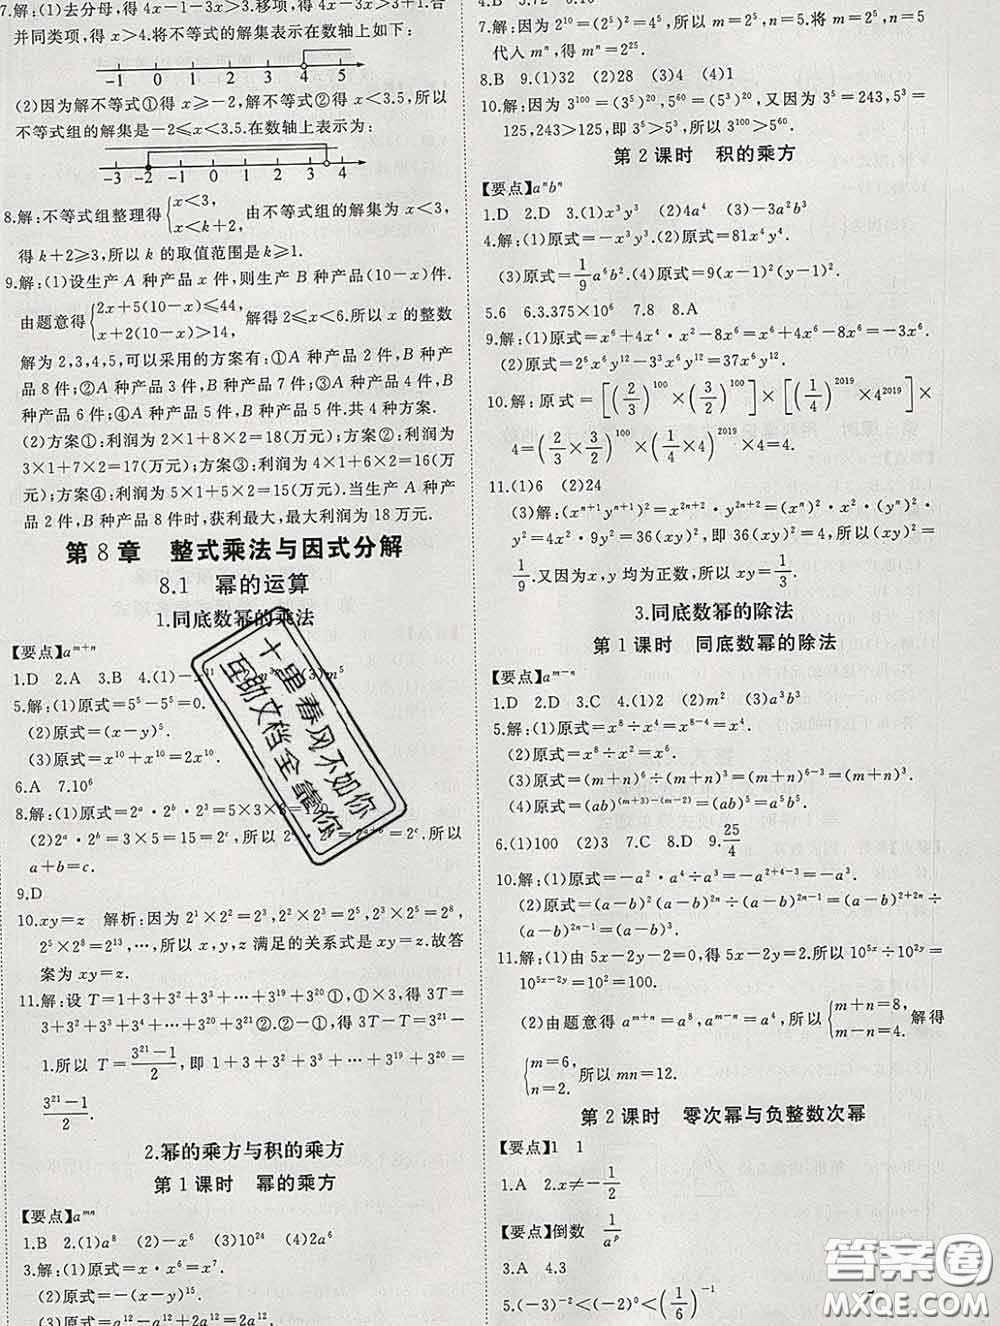 7.解:(1)去分母,得 4x－1－3x＞3,移项,得 4x－3x＞3＋1.合
并同类项,得 x＞4.将不等式的解集表示在数轴上如下:
-1 0 1 2 3 4 5
(2)因为解不等式①得 x≥－2,解不等式②得 x＜3.5,所以
不等式组的解集是－2≤x＜3.5.在数轴上表示为:
-3 -2 -1 0 1 2 3 4
8.解:不等式组整理得{x＜3, x＜k＋2, 由不等式组的解集为 x＜3,
得 k＋2≥3,所以 k 的取值范围是 k≥1.
9.解:(1)设生产 A 种产品 x 件,则生产 B 种产品(10－x)件.
由题意得{2x＋5(10－x)≤44, x＋2(10－x)＞14, 解得 2≤x＜6.所以 x 的整数
解为 2,3,4,5,可以采用的方案有:①A 种产品 2 件,B 种产
品 8 件;②A 种产品 3 件,B 种产品 7 件;③A 种产品 4 件,B
种产品 6 件;④A 种产品 5 件,B 种产品 5 件.共 4 种方案.
(2)方案①:利润为 2×1＋8×2＝18(万元);方案②:利润为
3×1＋7×2＝17(万元);方案③:利润为 4×1＋6×2＝16(万
元);方案④:利润为 5×1＋5×2＝15(万元).当生产 A 种产
品 2 件,B 种产品 8 件时,获利最大,最大利润为 18 万元.
第 8 章 整式乘法与因式分解
8.1 幂的运算
1.同底数幂的乘法
【要点】a^{m＋n}
1.D 2.A 3.B 4.(1)－x^{11} (3)m^5
5.解:(1)原式＝5^5－5^5＝0.
(2)原式＝(x－y)^5.
(3)原式＝x^{10}＋x^{10}＝2x^{10}.
6.A 7.10^6
8.解:(1)原式＝2^a·2^b·2^a＝5×3×
(2)2^a·2^b＝3×5＝15＝2^c,所以 2^{a＋b}＝2^c.所以
a＋b＝c.
9.D
10.xy＝z 解析:因为 2^1×2^2＝2^3,2^2×2^3＝2^5,2^3×2^5＝2^8,
2^5×2^8＝2^{13},…,所以 x,y,z 满足的关系式是 xy＝z.故答
案为 xy＝z.
11.解:设 T＝1＋3＋3^2＋3^3＋…＋3^{19}＋3^{20}①,①×3,得 3T＝
3＋3^2＋3^3＋3^4＋…＋3^{20}＋3^{21}②.②－①,得 3T－T＝3^{21}－
1.所以 T＝(3^{21}－1)/2,即 1＋3＋3^2＋3^3＋…＋3^{19}＋3^{20}＝
(3^{21}－1)/2.
2.幂的乘方与积的乘方
第 1 课时 幂的乘方
【要点】a^{mn}
1.B 2.(1)a^8 (2)－x^6 (3)10^{24} (4)2a^6
3.解:(1)原式＝x·x^6＝x^7.
(2)原式＝－(x－y)^{15}.
(3)原式＝a^{12}－a^{12}＋2a^{12}＝2a^{12}.
7.解:因为 2^{10}＝(2^5)^2＝m^2,所以 m＝2^5,n＝5.将 m＝2^5,n＝5
代入 m^n,得 m^n＝2^{25}.
8.B 9.(1)32 (2)28 (3)4 (4)1
10.解:因为 3^{100}＝(3^5)^{20},5^{60}＝(5^3)^{20},又因为 3^5＝243,5^3＝
125,243＞125,即 3^5＞5^3,所以 3^{100}＞5^{60}.
第 2 课时 积的乘方
【要点】a^n b^n
1.D 2.D 3.(1)x^3y^3 (2)4a^4 (3)－3a^2b^3
4.解:(1)原式＝－x^3y^3.(2)原式＝81x^4y^8.
(3)原式＝1/9 a^6b^2.(4)原式＝9(x－1)^2(y－1)^2.
5.6 6.3.375×10^6 7.8 8.A
9.解:(1)原式＝x^6＋4x^4·x^2－8x^6＝x^6＋4x^6－8x^6＝－3x^6.
(2)原式＝2^6x^6y^{12}－3^3x^6y^{12}＝37x^6y^{12}.
10.解:原式＝[(2/3)^{100}×(3/2)^{100}]×[(1/4)^{2019}×4^{2019}]×
4＝(2/3×3/2)^{100}×(1/4×4)^{2019}×4＝4.
11.(1)6 (2)24
(3)解:(x^{n＋1}y^{n＋1})^2＝(x^{2n＋2})·(y^{2n＋2})＝(x^n)^2·x^2·(y^n)^2·
y^2＝4×9×(xy)^2＝36(xy)^2,即 36(xy)^2＝4.所以(xy)^2＝
1/9.又因为 x,y 均为正数,所以 xy＝1/3.
3.同底数幂的除法
第 1 课时 同底数幂的除法
【要点】a^{m－n}
1.D 2.D 3.C 4.(1)2 (2)m^2 (3)a^3b^3
5.解:(1)原式＝x^8÷x^4＝x^{8－4}＝x^4.
(2)原式＝x^8÷x^2＝x^6.
(3)原式＝(m＋n)^6÷(m＋n)^3＝(m＋n)^{6－3}＝(m＋n)^3.
(4)原式＝(ab)^{(m＋3)－(m－2)}＝(ab)^5＝a^5b^5.
6.(1)100 (2)3 7.C 8.D 9.25/4
10.解:(1)原式＝－a^2·a^4÷a^3＝－a^{2＋4－3}＝－a^3.
(2)原式＝(a－b)^2(a－b)^{2n}÷(a－b)^{2n－1}＝(a－b)^{2＋2n－
(2n－1)}＝(a－b)^3.
11.解:(1)由 5x－2y－2＝0,得 5x－2y＝2.所以 10^{5x}÷10^{2y}＝
10^{5x－2y}＝10^2＝100.
(2)由题意得 a^{m＋n}＝a^8,a^{m－n}＝a^4,所以{m＋n＝8, m－n＝4. 解得
{m＝6, n＝2. 所以 mn＝12.
第 2 课时 零次幂与负整数次幂
【要点】1 1
1.A 2.x≠－1/2
【要点】倒数 1/a^p
3.A 4.3
5.(－3)^{－2}＜(－2)^0＜(1/6)^{－1}
十里春风不如你
互助文档全靠你
答案圈
MXQE.COM